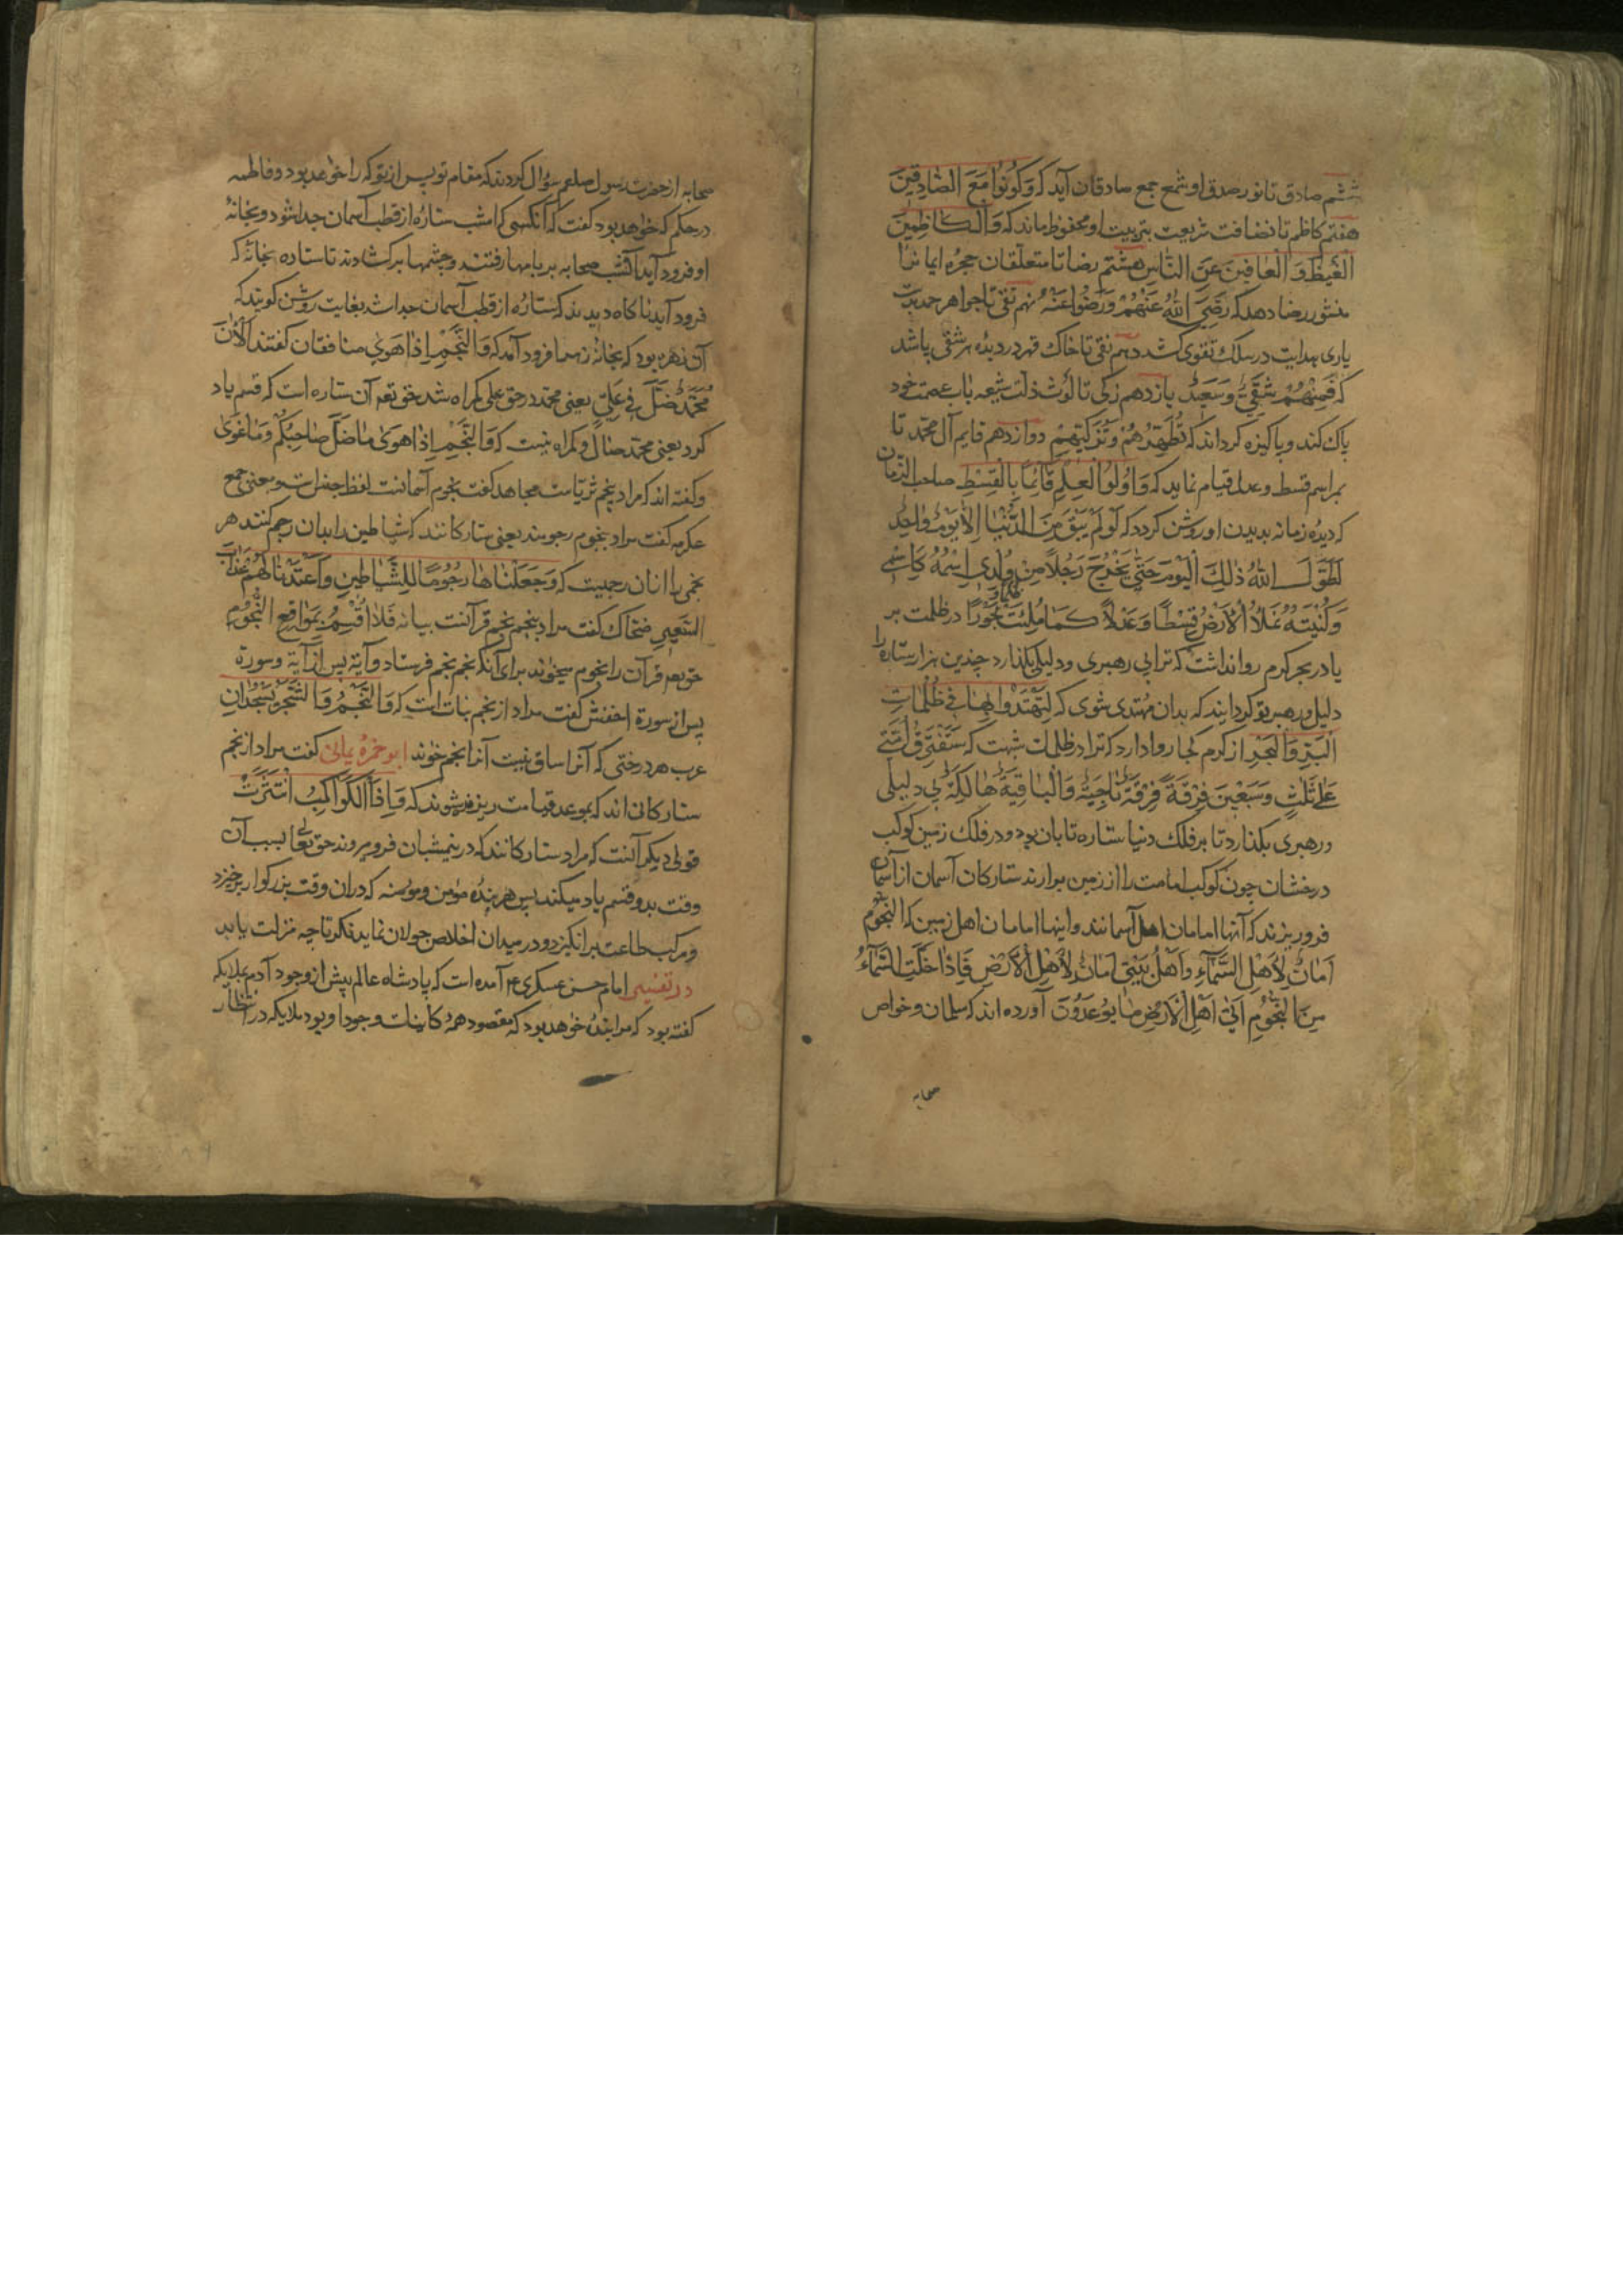 ششم صادق تا نور صدق او شمع جمع صادقان آید که وَكُونُوا مَعَ الصَّادِقِينَ
هفتم کاظم تا نضافت شریعت بتربیت او محفوظ ماند که وَالْكَاظِمِينَ
الْغَيْظَ وَالْعَافِينَ عَنِ النَّاسِ هشتم رضا تا متعلقان حجره ایمانرا
منشور رضا دهد که رَضِيَ اللهُ عَنْهُمْ وَرَضُوا عَنْهُ نهم تقی تا جواهر
یاری هدایت در سلک تقوی کشد دهم نقی تا خاک قهر در دیده هر شقی پاشد
که فَمِنْهُمْ شَقِيٌّ وَسَعِيدٌ یازدهم زکی تا لوث ذلت شیعه باب عصمت خود
پاک کند و پاکیزه کرداند که تُطَهِّرُهُمْ وَتُزَكِّيهِمْ دوازدهم قایم آل محمد تا
بمراسم قسط و عدل قیام نماید که وَاُولُوا الْعِلْمِ قَائِمًا بِالْقِسْطِ صاحب الزمان
که دیده زمانه بدیدن او روشن کردد که لَوْ لَمْ يَبْقَ مِنَ الدُّنْيَا اِلَّا يَوْمٌ وَاحِدٌ
لَطَوَّلَ اللهُ ذٰلِكَ الْيَوْمَ حَتَّى يَخْرُجَ رَجُلًا مِنْ وُلْدِي اِسْمُهُ كَاِسْمِي
وَكُنْيَتُهُ يَمْلَأُ الْاَرْضَ قِسْطًا وَعَدْلًا كَمَا مُلِئَتْ ظلما و جَوْرًا در ظلمت بر
یا در بحر کرم روا نداشت که ترا بی رهبری و دلیلی بکذارد چندین هزار ستاره را
دلیل و رهبر تو کردانید که بدان مهتدی شوی که لِتَهْتَدُوا بِهَا فِي ظُلُمَاتِ
الْبَرِّ وَالْبَحْرِ از کرم کجا روا دارد که ترا در ظلمات شبهت که سَتَفْتَرِقُ اُمَّتِي
عَلَى ثَلٰثٍ وَسَبْعِينَ فِرْقَةً فِرْقَةٌ نَاجِيَةٌ وَالْبَاقِيَةُ هَالِكَةٌ بی دلیلی
و رهبری بکذارد تا بر فلک دنیا ستاره تابان بود و در فلک زمین کوکب
درخشان چون کوکب امامت را از زمین بردارند ستارکان آسمان از آسمان
فرو ریزند که آنها امامان اهل آسمانند و اینها امامان اهل زمین که النُّجُومُ
اَمَانٌ لِاَهْلِ السَّمَاءِ وَاَهْلُ بَيْتِي اَمَانٌ لِاَهْلِ الْاَرْضِ فَاِذَا خَلَتِ السَّمَاءُ
مِنَ النُّجُومِ اَتَى اَهْلَ الْاَرْضِ مَا يُوعَدُونَ آورده اند که سلمان و خواص
صحابه
صحابه از حضرت رسول صلعم سؤال کردند که مقام تو پس از تو کرا خواهد بود و فاطمه
در حکم که خواهد بود گفت که آنکسی که امشب ستاره از قطب آسمان جدا شود و بخانهٔ
او فرود آید آن شب صحابه بر بامها رفتند و چشمها بر کشادند تا ستاره بخانهٔ که
فرود آید ناکاه دیدند که ستاره از قطب آسمان جدا شد بغایت روشن کویند که
آن زهره بود که بخانه زهرا فرود آمد که وَالنَّجْمِ اِذَا هَوَى منافقان کفتند الْاٰنَ
مُحَمَّدٌ ضَلَّ فِي عَلِيٍّ یعنی محمد در حق علی کمراه شد حق تعم آن ستاره است که قسم یاد
کرد یعنی محمد ضال و کمراه نیست که وَالنَّجْمِ اِذَا هَوَى مَا ضَلَّ صَاحِبُكُمْ وَمَا غَوَى
و کفته اند که مراد بنجم ثریاست مجاهد کفت نجوم آسمانست لفظ جنس است و معنی جمع
عکرمه کفت مراد بنجوم رجومند یعنی ستارکانند که شیاطین را بدان رجم کنند هر
نجمی را از آن رجمیت که وَجَعَلْنَاهَا رُجُومًا لِلشَّيَاطِينِ وَاَعْتَدْنَا لَهُمْ عَذَابَ
السَّعِيرِ ضحاک کفت مراد بنجم نجم قرآنست بیانه فَلَا اُقْسِمُ بِمَوَاقِعِ النُّجُومِ
حق تعم قرآن را نجوم میخواند برای آنکه نجم نجم فرستاد و آیة پس از آیة و سورة
پس از سورة اخفش کفت مراد از نجم نبات است که وَالنَّجْمُ وَالشَّجَرُ يَسْجُدَانِ
عرب هر درختی که آنرا ساق نیست آنرا نجم خواند ابو حمزه یمالی کفت مراد از نجم
ستارکانی اند که بموعد قیامت ریزنده شوند که وَاِذَا الْكَوَاكِبُ انْتَثَرَتْ
قولی دیکر آنست که مراد ستارکانند که در نیمشبان فرو میروند حق تعالی بسبب آن
وقت بدو قسم یاد میکند پس هر بنده مؤمن و مؤمنه که در آن وقت بزرکوار برخیزد
و مرکب طاعت برانکیزد و در میدان اخلاص جولان نماید فکر تا چه منزلت یابد
در تفسیر امام حسن عسکری ع آمده است که پادشاه عالم پیش از وجود آدم بملایکه
کفته بود که مرا بنده خواهد بود که مقصود همه کاینات وجود او بود ملایکه در انتظار